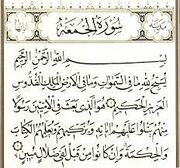 سُورَةُ الْجُمُعَةِ
بِسْمِ اللَّهِ الرَّحْمَنِ الرَّحِيمِ
يُسَبِّحُ لِلَّهِ مَا فِي السَّمَوَاتِ وَمَا فِي الْأَرْضِ الْمَلِكِ الْقُدُّوسِ
الْعَزِيزِ الْحَكِيمِ هُوَ الَّذِي بَعَثَ فِي الْأُمِّيِّينَ رَسُولًا
مِنْهُمْ يَتْلُوا عَلَيْهِمْ آيَاتِهِ وَيُزَكِّيهِمْ وَيُعَلِّمُهُمُ الْكِتَابَ
وَالْحِكْمَةَ وَإِنْ كَانُوا مِنْ قَبْلُ لَفِي ضَلَالٍ مُبِينٍ